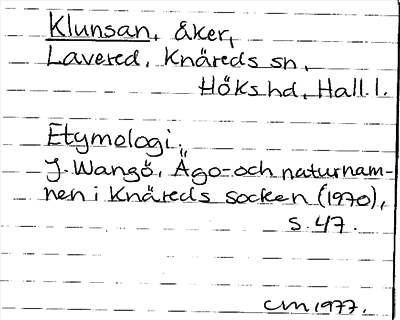 Klunsan, åker,
Lavered, Knäreds sn,
Höks hd, Hall. l.
Etymologi:
J. Wangö, Ägo- och naturnam-
nen i Knäreds socken (1970),
s. 47.
CM 1977.